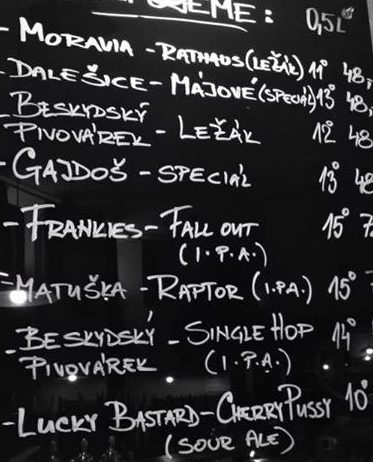 0,5L
- MORAVIA - RATHAUS (LEŽÁK) 11° 48,
- DALEŠICE - MÁJOVÉ (SPECIÁL) 13° 48,
- BESKYDSKÝ
PIVOVÁREK - LEŽÁK 12° 48
- GAJDOŠ - SPECIÁL 13° 48
- FRANKIES - FALL OUT 15° 7
(I.P.A.)
- MATUŠKA - RAPTOR (I.P.A.) 15°
- BESKYDSKÝ - SINGLE HOP 14°
PIVOVÁREK (I.P.A.)
- LUCKY BASTARD - CHERRY PUSSY 10°
(SOUR ALE)